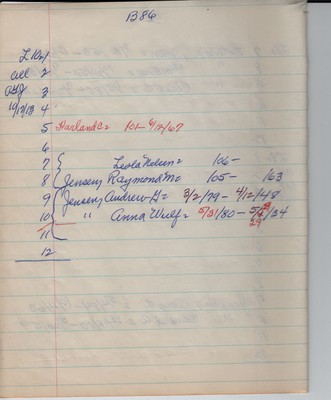 B86
L 102
all 2
3
10/17/13 4
5 Harland C= 101- 6/12/67
6
7 { Leola Nolun= 106-
8 { Jensen, Raymond M= 105- /63
9 { Jensen, Andrew G= 3/2/79 - 4/12/48
10 { " Anna Wulf= 5/31/80 - /34
11
12